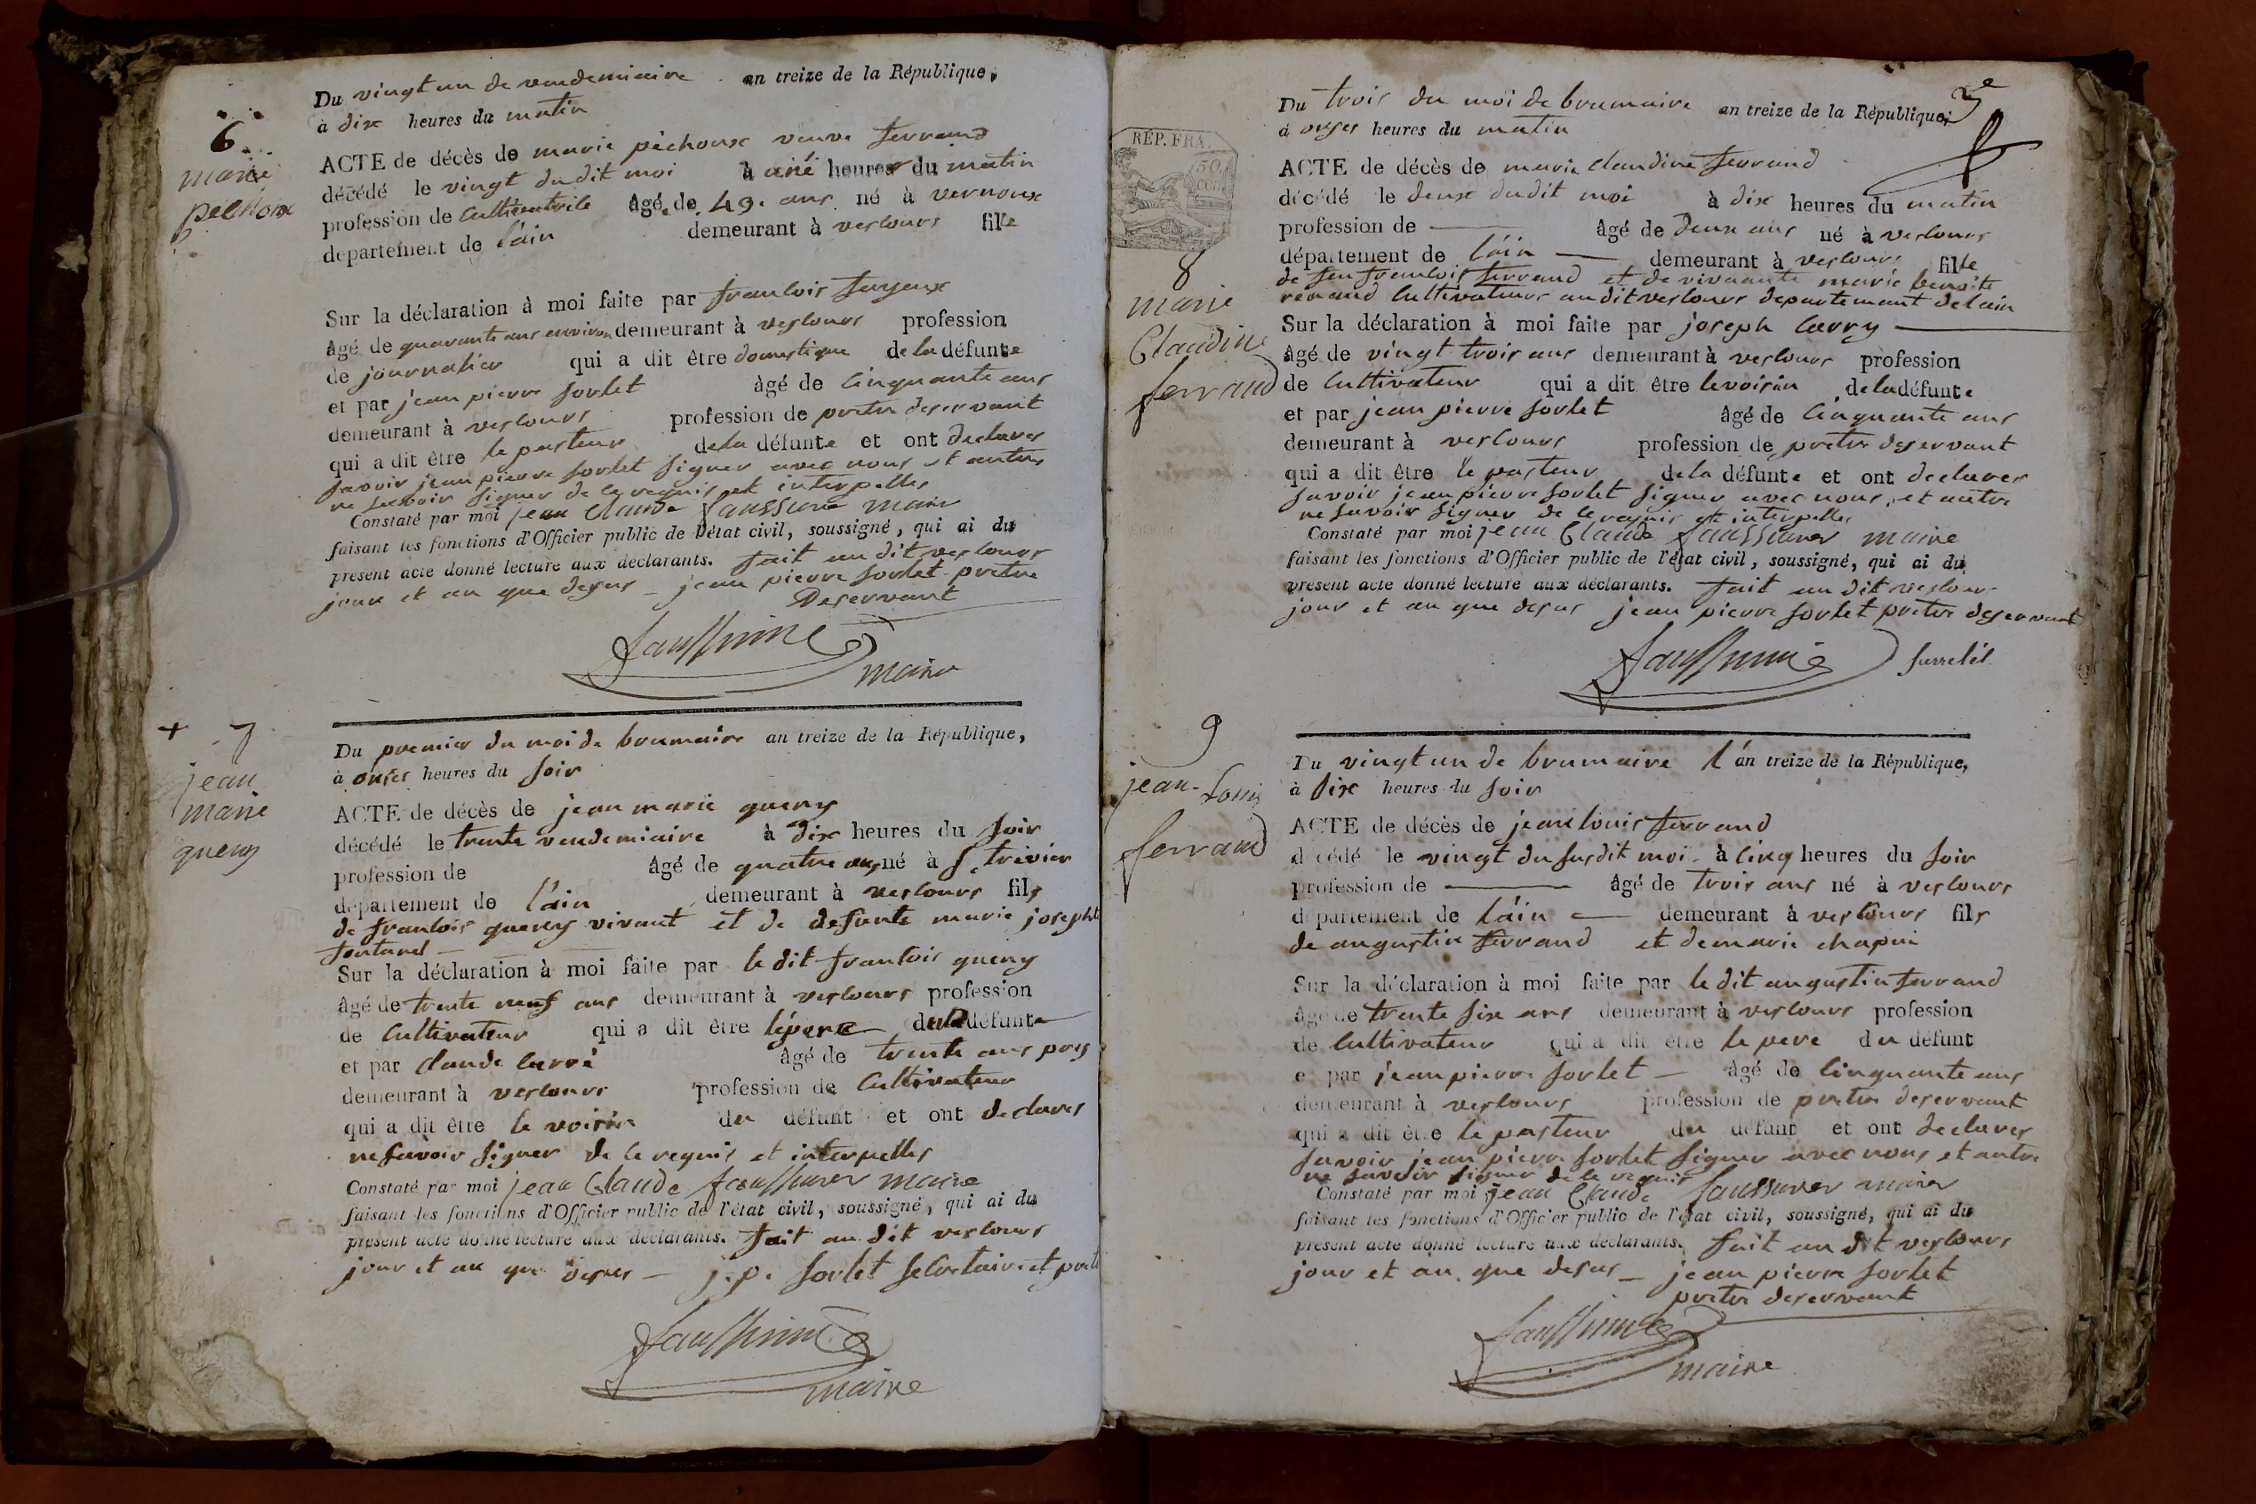 6
marie
pechoux
Du vingt un de vendemiaire an treize de la République,
à dix heures du matin
ACTE de décès de marie péchoux veuve ferrand
décédé le vingt du dit moi à heures du matin
profession de Cultivatrice âgé de 49 ans né à vernoux
département de l'ain demeurant à vescours fille
Sur la déclaration à moi faite par francois
âgé de quarante ans environ demeurant à vescours profession
de journalier qui a dit être domestique de la défunte
et par jean pierre sorlet âgé de cinquante ans
demeurant à vescours profession de pretre deservant
qui a dit être le pasteur de la défunte et ont declares
savoir jean pierre sorlet signer avec nous et autres
ne savoir signer de ce requis et interpelles
Constaté par moi jean claude faussurier maire
faisant les fonctions d'Officier public de l'état civil, soussigné, qui ai du
présent acte donné lecture aux déclarants. fait au dit vescours
jour et an que desus - jean pierre sorlet pretre
Deservant
maire
+ 7
jean
marie
queny
Du premier du moi de brumaire an treize de la République,
à onses heures du soir
ACTE de décès de jean marie queny
décédé le trente vendemiaire à dix heures du soir
profession de âgé de quatre ans né à St trivier
département de l'ain demeurant à vescours fils
de francois queny vivant et de defunte marie josephte
fontanel
Sur la déclaration à moi faite par le dit francois queny
âgé de trente neuf ans demeurant à vescours profession
de Cultivateur qui a dit être le pere du défunt
et par claude carré âgé de trente ans
demeurant à vescours profession de Cultivateur
qui a dit être le voisin du défunt et ont declares
ne savoir signer de ce requis et interpelles
Constaté par moi jean Claude faussurier maire
faisant les fonctions d'Officier public de l'état civil, soussigné, qui ai du
présent acte donné lecture aux déclarants. fait au dit vescours
jour et an que desus - j. p. sorlet secretaire et pretre
maire
3e
RÉP. FRA.
50
8
marie
Claudine
ferrand
Du trois du moi de brumaire an treize de la République,
à onses heures du matin
ACTE de décès de marie claudine ferrand
décédé le deux dudit moi à dix heures du matin
profession de — âgé de Deux ans né à vescours
département de l'ain — demeurant à vescours fille
de feu francois ferrand et de vivante marie benoite
renand Cultivateurs au dit vescours departemant de lain
Sur la déclaration à moi faite par joseph carry —
âgé de vingt trois ans demeurant à vescours profession
de Cultivateur qui a dit être le voisin de la défunte
et par jean pierre sorlet âgé de cinquante ans
demeurant à vescours profession de pretre deservant
qui a dit être le pasteur de la défunte et ont declares
savoir jean pierre sorlet signer avec nous et autre
ne savoir signer de ce requis et interpelles
Constaté par moi jean Claude faussurier maire
faisant les fonctions d'Officier public de l'état civil, soussigné, qui ai du
présent acte donné lecture aux déclarants. fait au dit vescours
jour et an que desus jean pierre sorlet pretre deservant
9
jean-Louis
ferrand
Du vingt un de brumaire l'an treize de la République,
à Dix heures du soir
ACTE de décès de jean louis ferrand
décédé le vingt du susdit moi à cinq heures du soir
profession de — âgé de trois ans né à vescours
département de l'ain — demeurant à vescours fils
de augustin ferrand et de marie chapui
Sur la déclaration à moi faite par le dit augustin ferrand
âgé de trente six ans demeurant à vescours profession
de Cultivateur qui a dit être le pere du défunt
et par jean pierre sorlet — âgé de cinquante ans
demeurant à vescours profession de pretre deservant
qui a dit être le pasteur du défunt et ont declares
savoir jean pierre sorlet signer avec nous et autre
ne savoir signer de ce requis
Constaté par moi jean Claude faussurier maire
faisant les fonctions d'Officier public de l'état civil, soussigné, qui ai du
présent acte donné lecture aux déclarants. fait au dit vescours
jour et an que desus - jean pierre sorlet
pretre deservant
maire